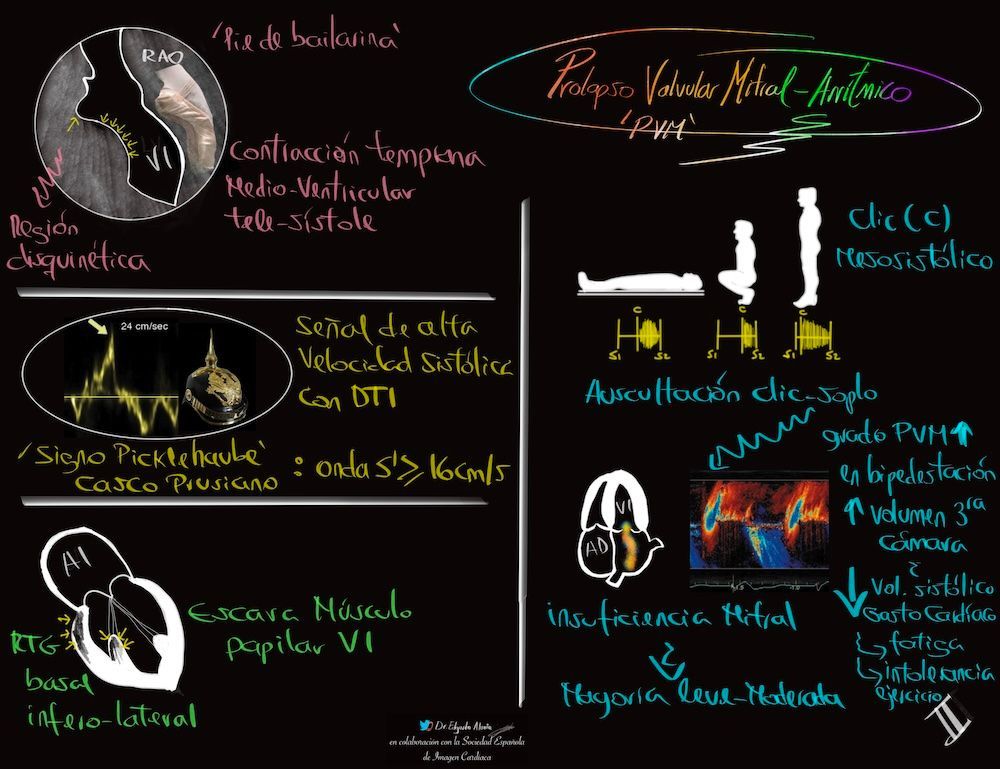 'Pie de bailarina'
RAO
VI
Contracción temprana
Medio-Ventricular
tele-sístole
Región
disquinética
Prolapso Valvular Mitral-Arrítmico
'PVM'
24 cm/sec
Señal de alta
Velocidad Sistólica
con DTI
'Signo Picklehaube'
Casco Prusiano
: onda S' ≥ 16cm/s
AI
Escara Músculo
papilar VI
RTG
basal
infero-lateral
Clic (C)
Mesosistólico
C
C
C
S1
S2
S1
S2
S1
S2
Auscultación clic-soplo
grado PVM ↑
en bipedestación
↑ Volumen 3ra
cámara
↓ Vol. sistólico
Gasto Cardíaco
↳ fatiga
↳ intolerancia
ejercicio
VI
AD
insuficiencia Mitral
Mayoría leve-Moderada
en colaboración con la Sociedad Española
de Imagen Cardíaca